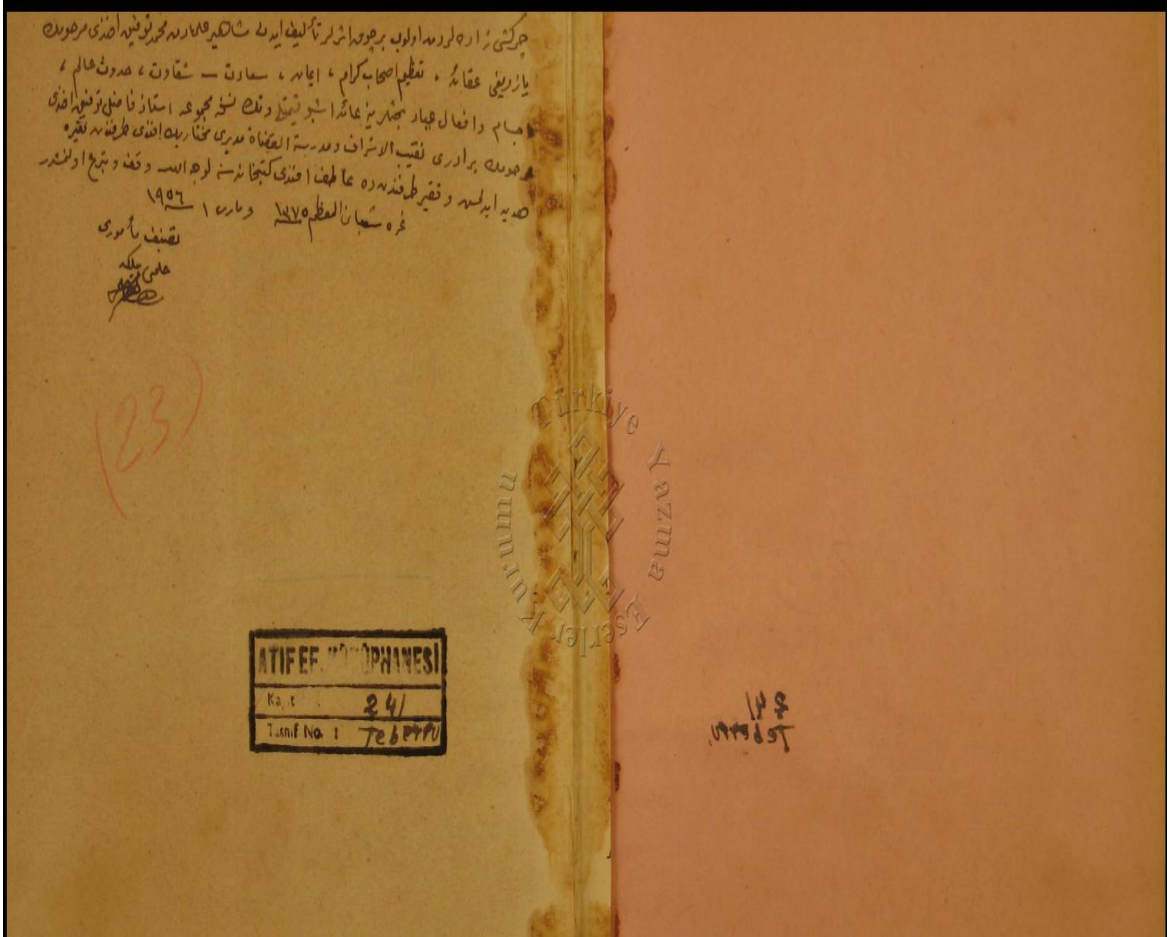 چركشی زاده لردن اولوب برچوق اثرلر تأليف ايدن مشاهير علمادن محمد توفيق افندی مرحومك
يازديغی عقائد ، تعظيم اصحاب كرام ، ايمان ، سعادت – شقاوت ، حدوث عالم ،
اجسام وافعال عباد بحثلرينه عائد اشبو قيمتلی وتك نسخه مجموعه استاذ فاضل توفيق افندی
مرحومك برادری نقيب الاشراف ومدرسة القضاة مديری مختار بك افندی طرفندن فقيره
هديه ايدلمش و فقير طرفندن ده عاطف افندی كتبخانه سنه لوجه الله وقف و تبرع اولنمشدر
غره شعبان المعظم ١٣٧٥ ومارت ١ ١٩٥٦
تصنيف مأموری
حلمی
(23)
ATIF EF. KÜTÜPHANESİ
Kayıt 241
Tasnif No. : Teberru
241
Teberru
Türkiye Yazma Eserler Kurumu